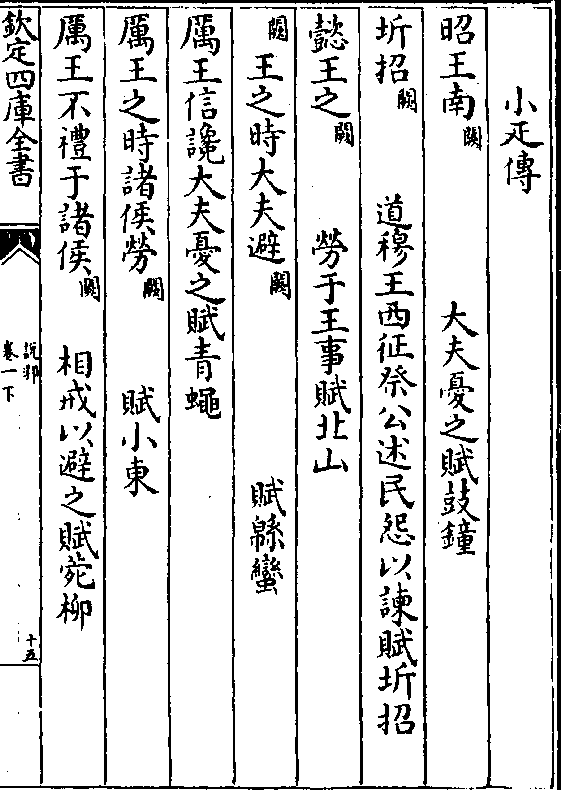 小疋傳
昭王南闕大夫憂之賦鼓鐘
圻招闕道穆王西征祭公述民怨以諫賦圻招
懿王之闕勞于王事賦北山
闕王之時大夫避闕賦緜蠻
厲王信讒大夫憂之賦青蠅
厲王之時諸侯勞闕賦小東
厲王不禮于諸侯闕相戒以避之賦菀柳
欽定四庫全書
說郛
卷一下
十五